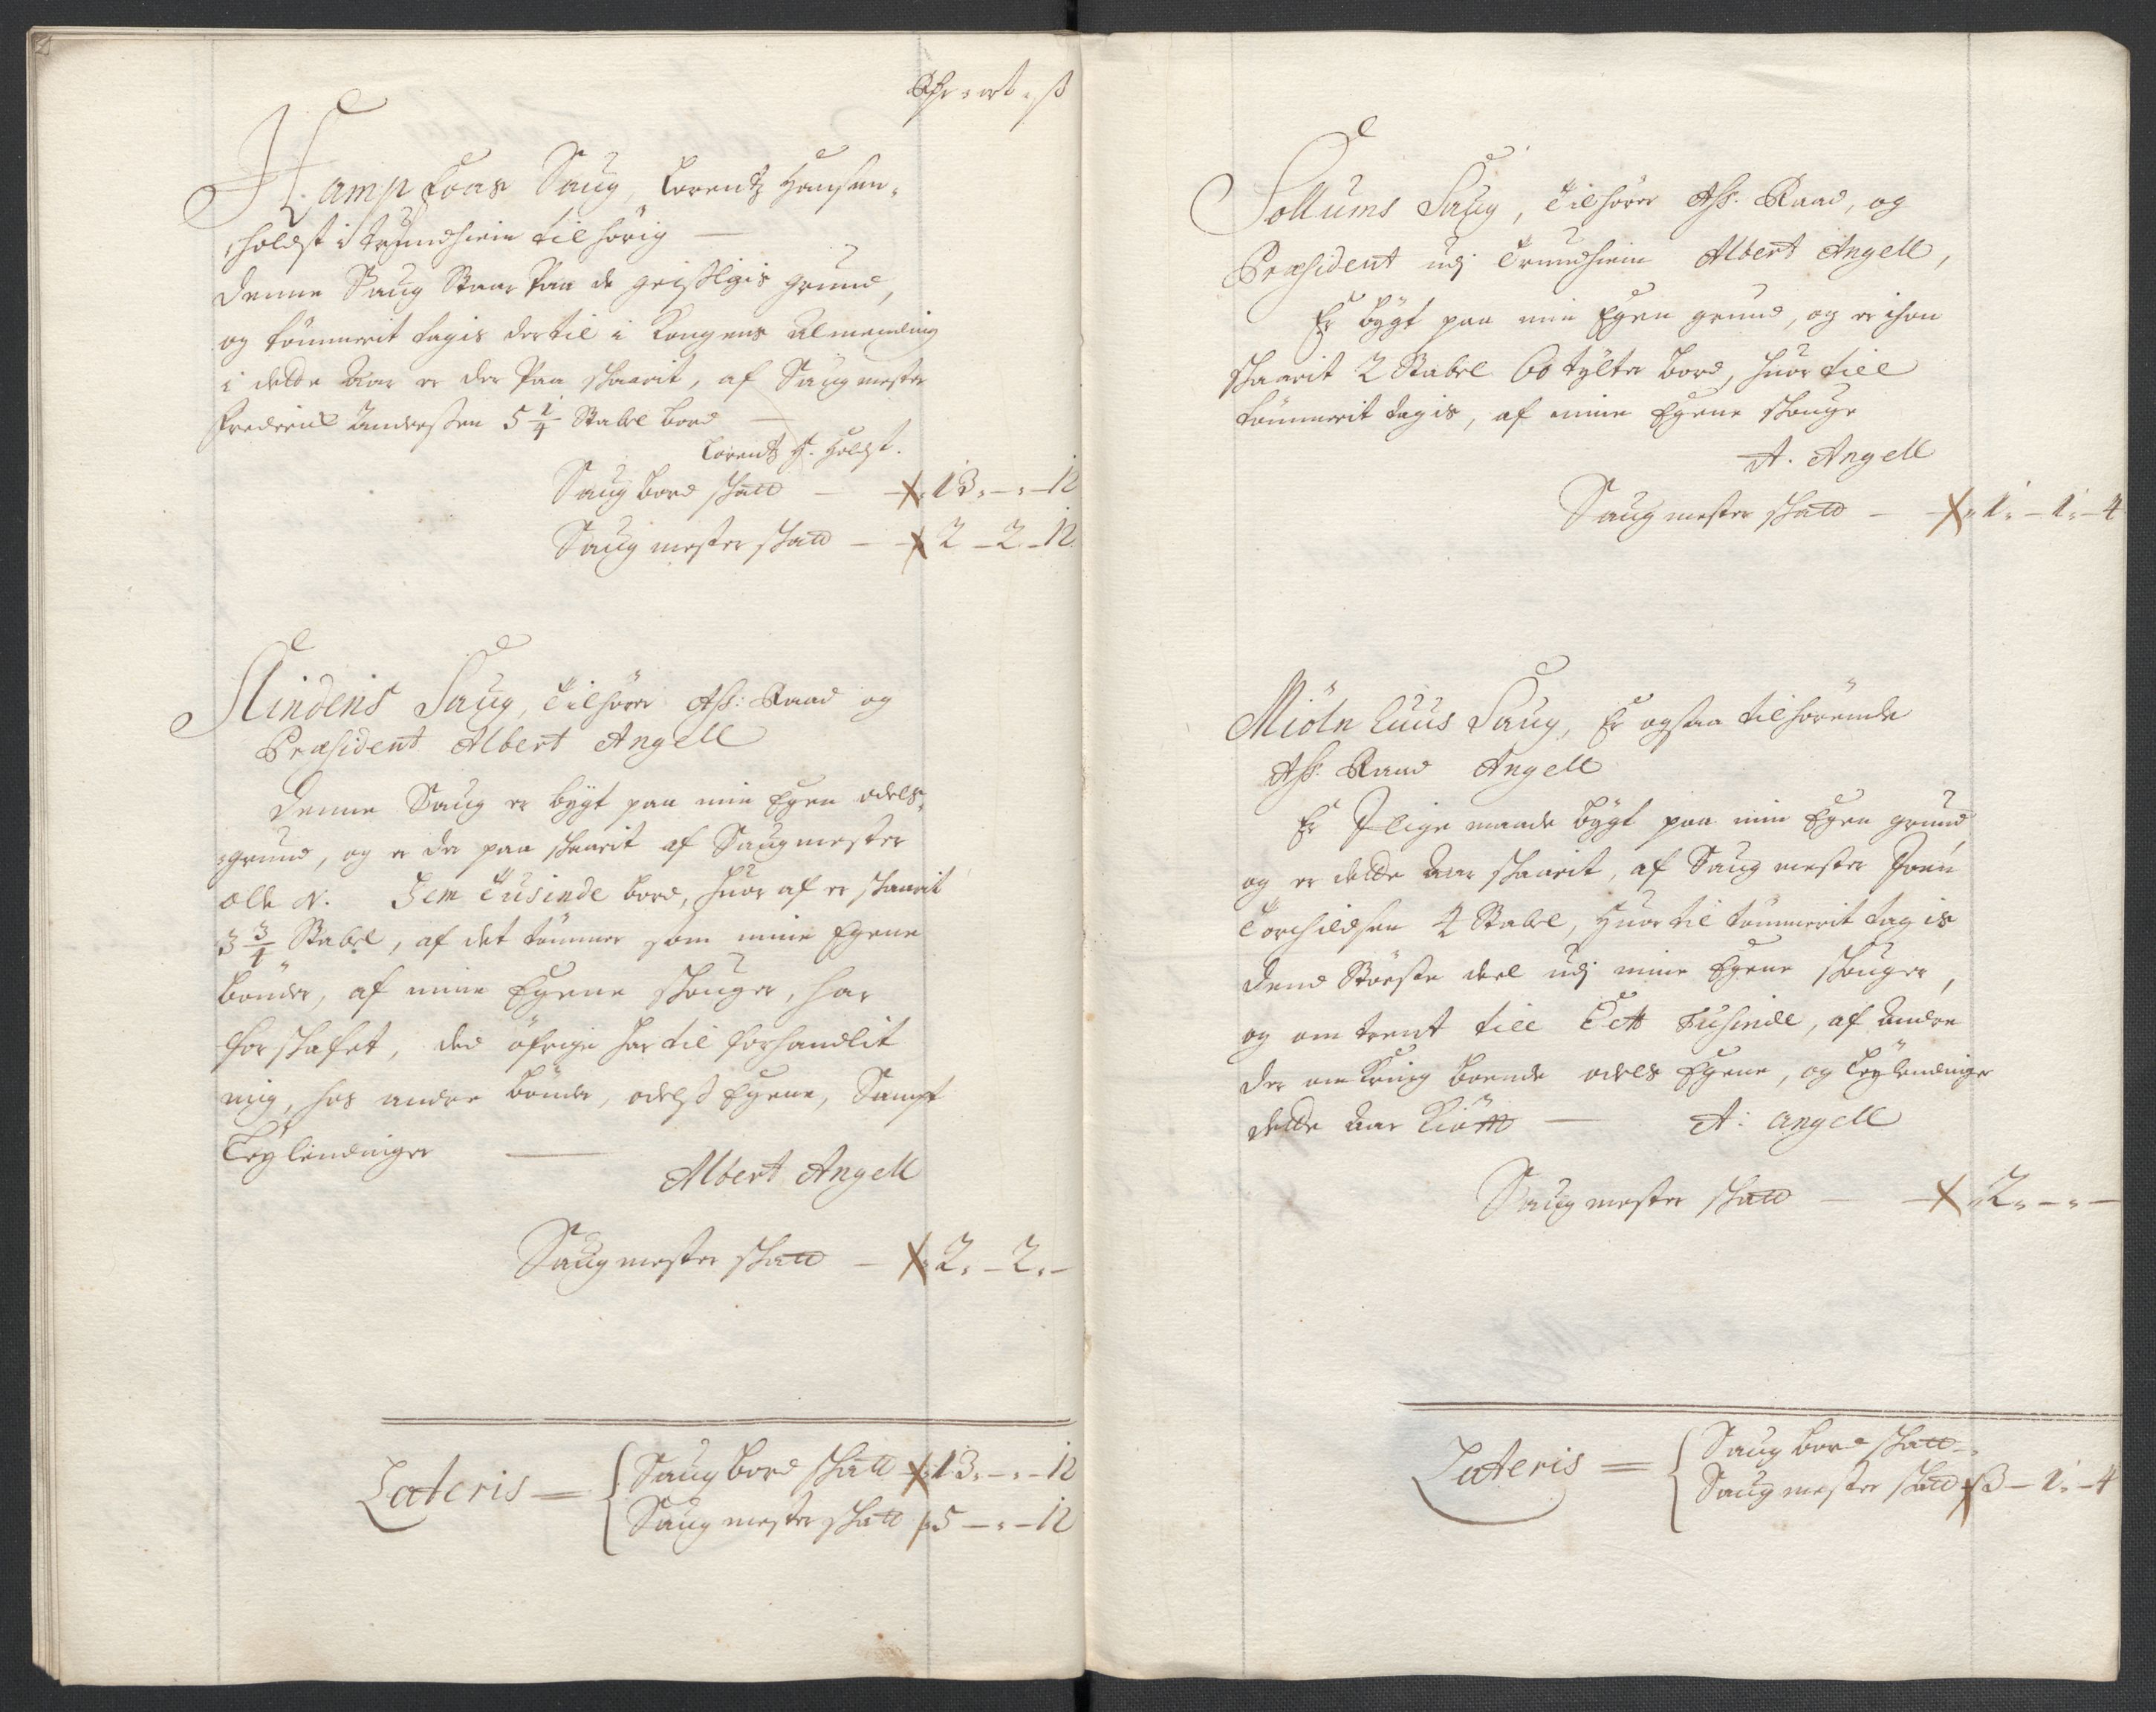 Rdr : ort : ß
Hamp foas Saug, Lorentz Hansen
holdst i Trundhiem tilhörig —
denne Saug Staar Paa de geistligis grund,
og tömmerit tagis dertil i Kongens Almending
i dette Aar er der Paa skaarit, af Saugmester
Frederich Anderssen 5 1/4 Stabel bord —
Lorentz H. Holdst.
Saugbord skatt — 13 : — : 12
Saugmester skatt — 2 — 2 — 12
Klindenis Saug, Tilhörer Ass: Raad og
Præsident Albert Angell
Denne Saug er bygt paa min Egen odels
grund, og er der paa skaarit af Saugmester
olle N. Fem Tusinde bord, huor af er skaarit
3 3/4 Stabel, af det tömmer som mine Egene
bönder, af mine Egene skouger, har
forskafet, ded öfrige har til forhandlit
mig, hos andre bönder, odelß Egene, Sampt
Leylendinger —
Albert Angell
Saugmester skatt — 2 : — 2 : —
Lateris = { Saugbord skatt 13 : — : — 12
Saugmester skatt 5 — : — 12
Sollums Saug, Tilhörer Ass. Raad, og
Præsident udj Trundhiem Albert Angell,
Er bygt paa min Egen grund, og er ihon
skaarit 2 Stabel 60 tylter bord, huor till
tömmerit tagis, af mine Egene skouge
A. Angell
Saugmester skatt — 1 : — 1 : — 4
Miöln Luus Saug, Er ogsaa tilhörende
Ass. Raad Angell
Er Jlige maade bygt paa min Egen grund
og er dette Aar skaarit, af Saugmester Joen
Torchildsen 4 Stabel, Huortil tömmerit tagis
dend Störste deel udj mine Egene skouger,
og omtrent till Ett Tusinde, af Andre
der omkring boende odels Egene, og Leylendinger
dette Aar Kiöft — A: Angell
Saugmester skatt — 2 : — : —
Lateris = { Saugbord skatt —
Saugmester skatt 3 — 1 : — 4